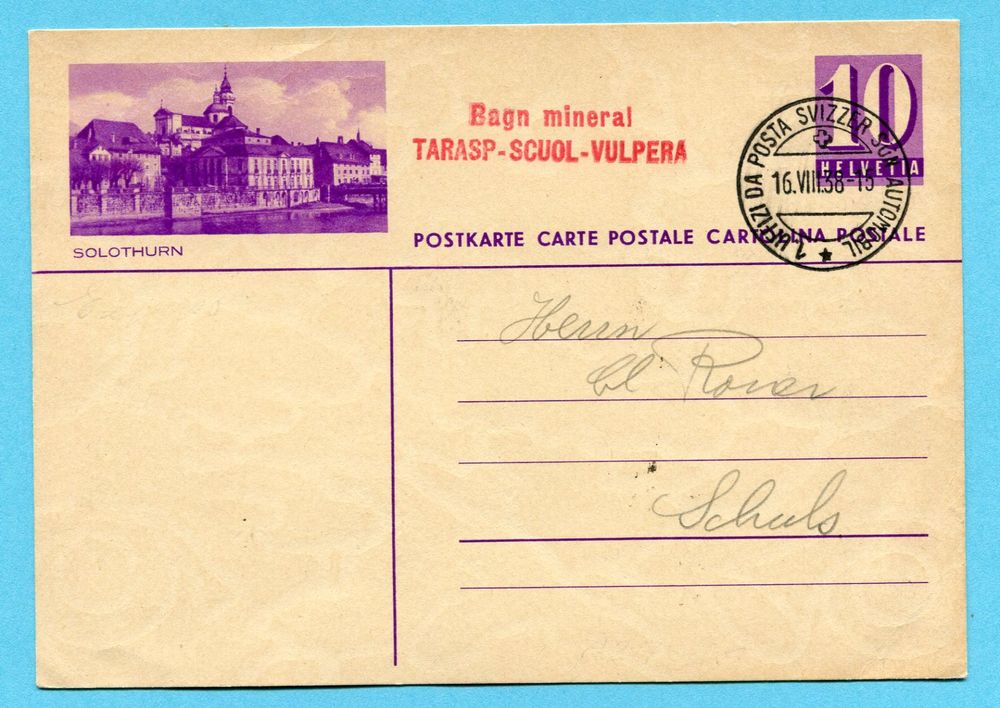 Bagn mineral
TARASP-SCUOL-VULPERA
10
HELVETIA
1 UFFIZI DA POSTA SVIZZER SÜN AUTOMOBIL
16.VIII.38-15
SOLOTHURN
POSTKARTE CARTE POSTALE CARTOLINA POSTALE
Herrn
Schuls